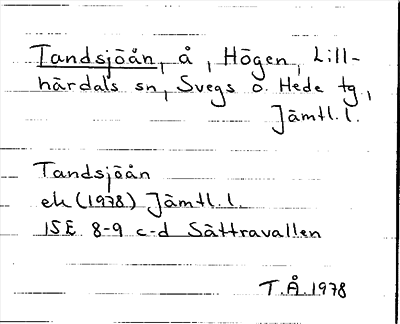 Tandsjöån, å, Högen, Lill-
härdals sn, Svegs o. Hede tg.,
Jämtl. l.
Tandsjöån
ek (1978) Jämtl. l.
15E 8-9 c-d Sättravallen
T.Å. 1978